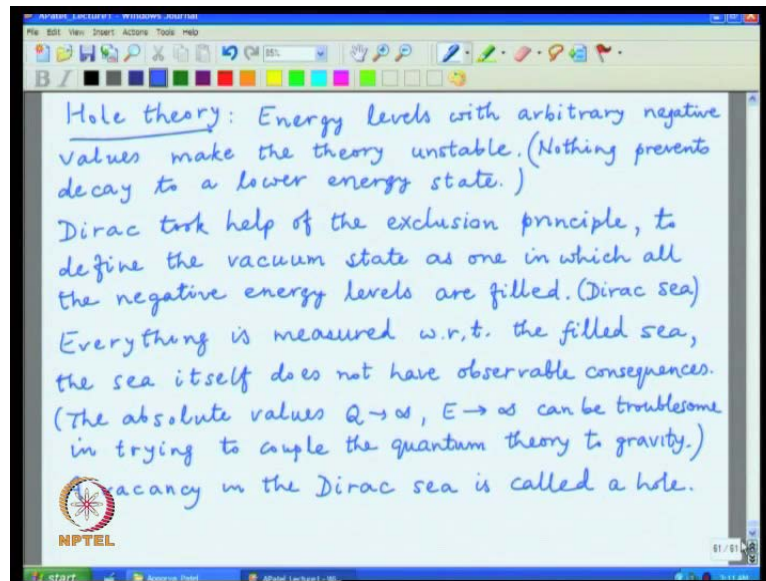 APatel_Lecture1 - Windows Journal
File Edit View Insert Actions Tools Help
85%
B I
Hole theory: Energy levels with arbitrary negative
values make the theory unstable. (Nothing prevents
decay to a lower energy state.)
Dirac took help of the exclusion principle, to
define the vacuum state as one in which all
the negative energy levels are filled. (Dirac sea)
Everything is measured w.r.t. the filled sea,
the sea itself does not have observable consequences.
(The absolute values Q → ∞, E → ∞ can be troublesome
in trying to couple the quantum theory to gravity.)
vacancy in the Dirac sea is called a hole.
NPTEL
61/61
start Apoorva Patel APatel_Lecture1 - Wi... 3:11 AM